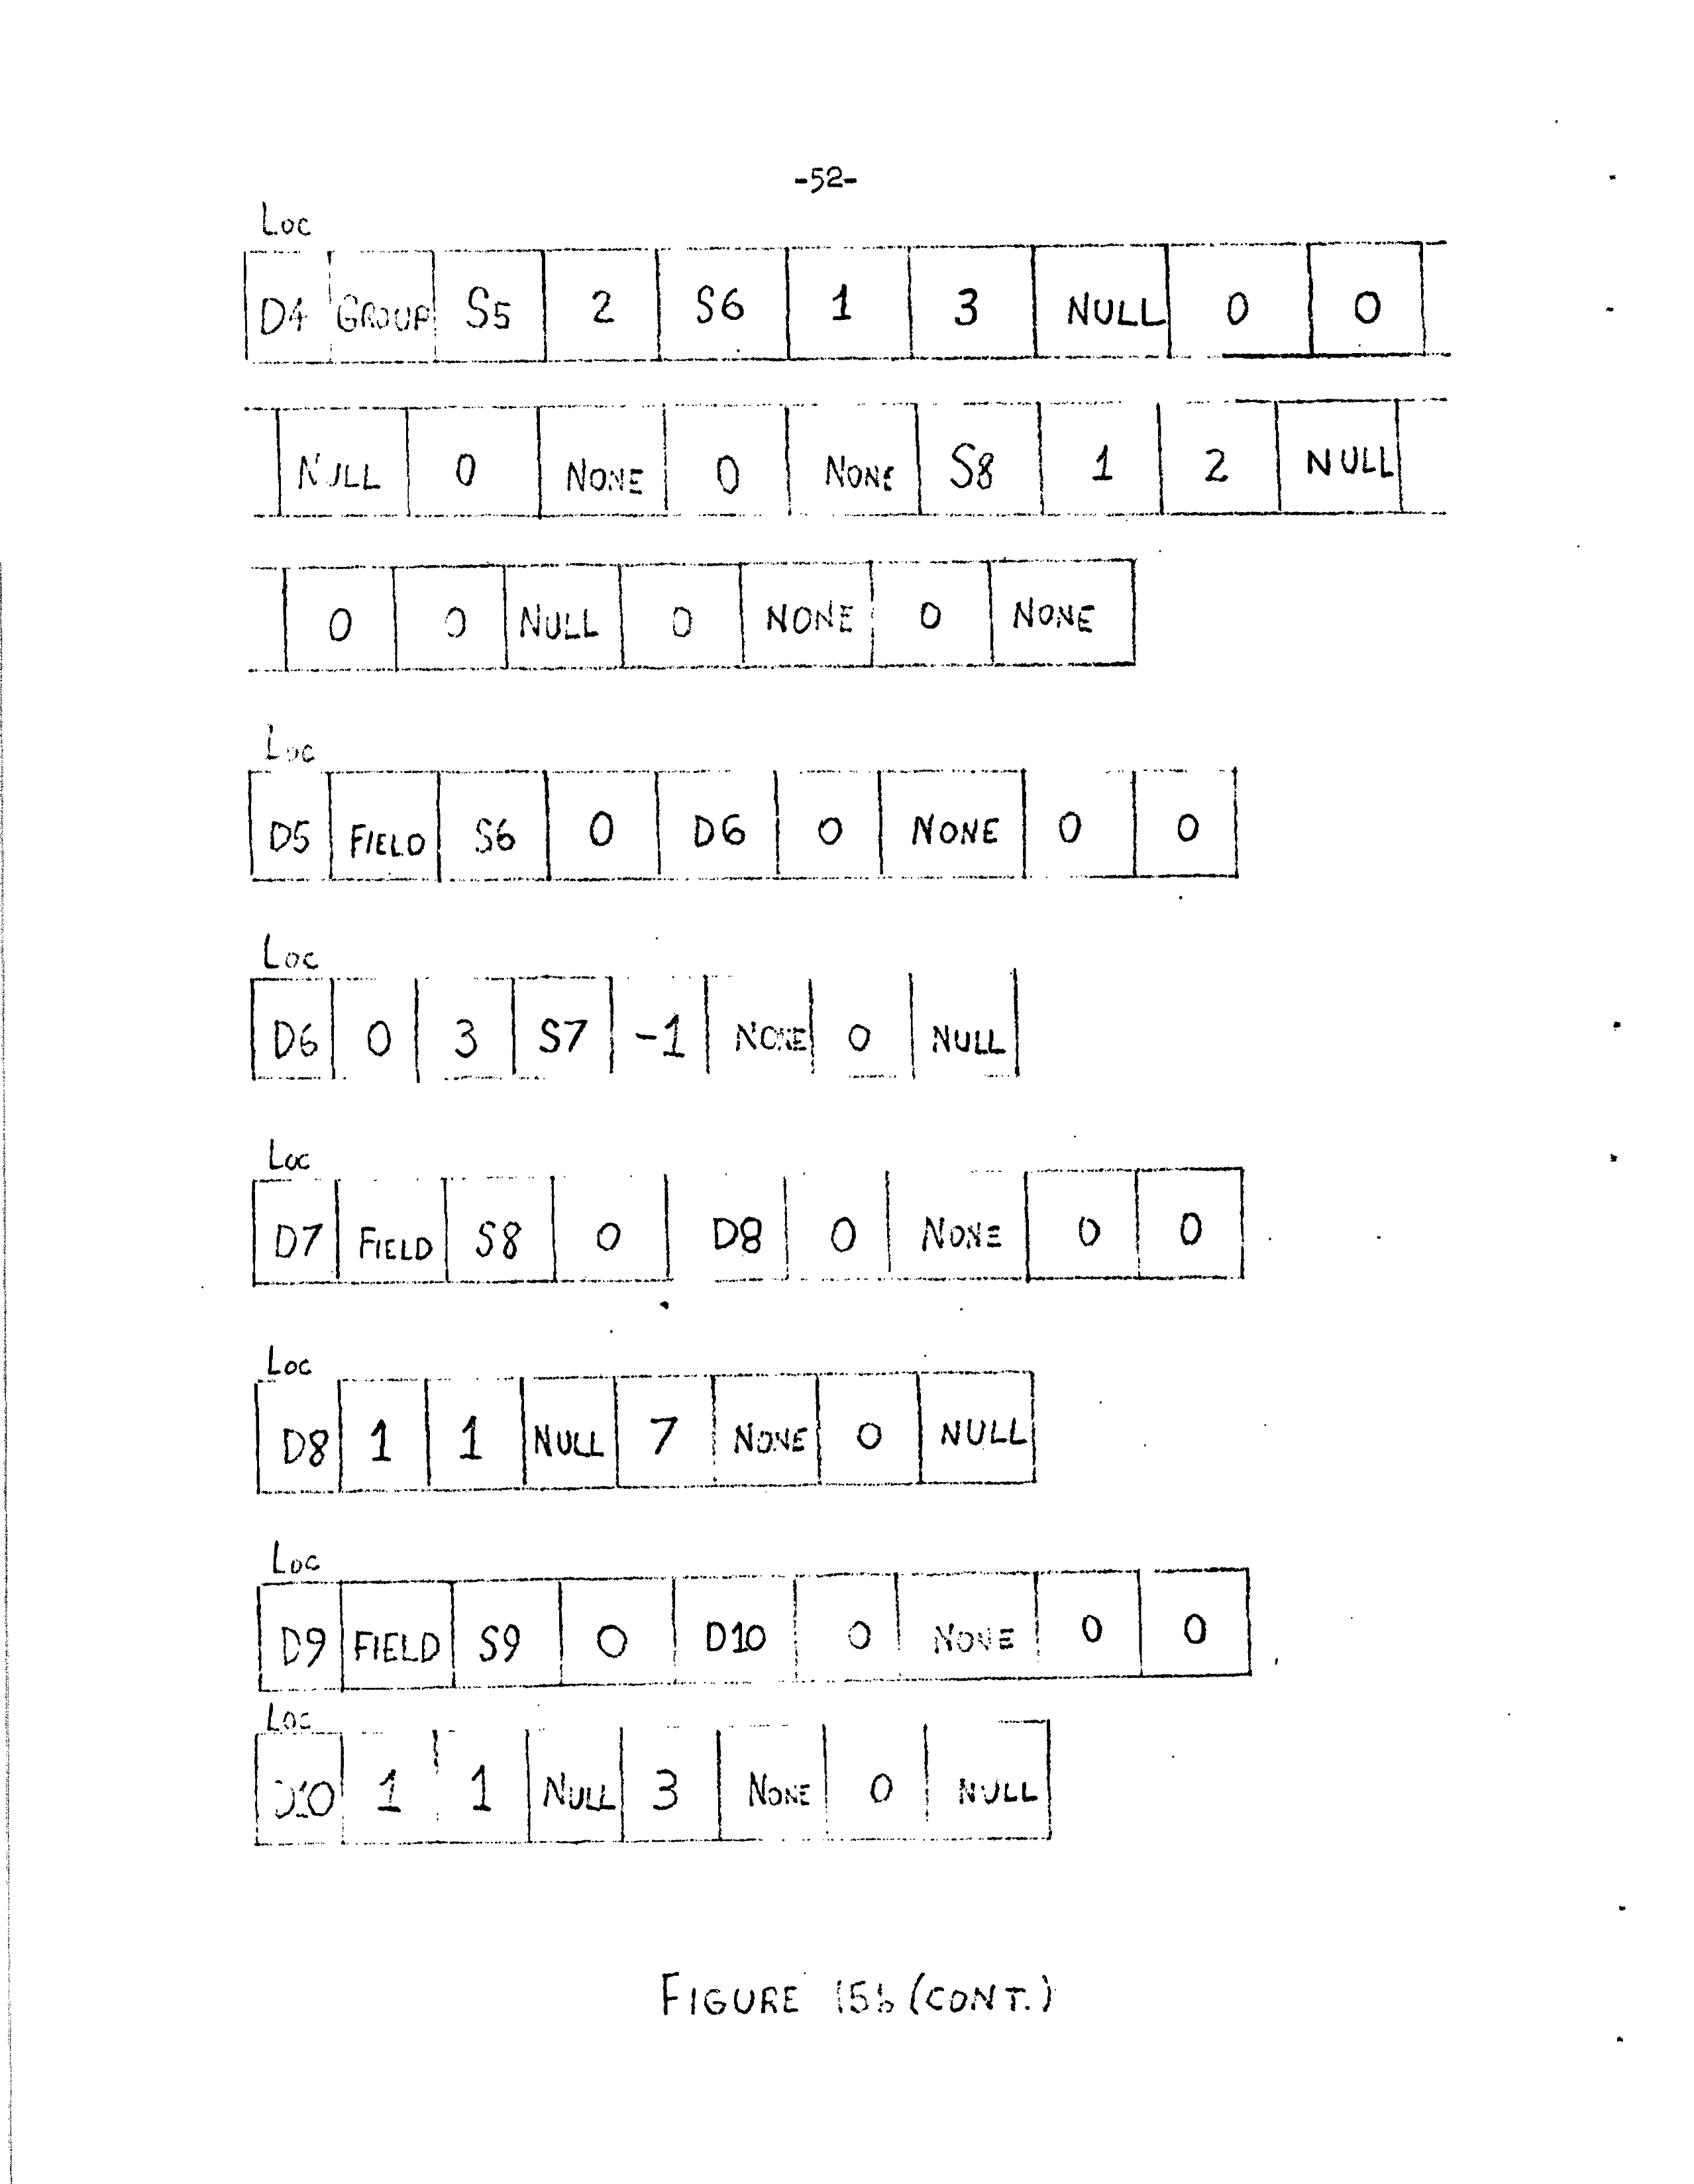 -52-
Loc
D4 GROUP S5 2 S6 1 3 NULL 0 0
NULL 0 NONE 0 NONE S8 1 2 NULL
0 0 NULL 0 NONE 0 NONE
Loc
D5 FIELD S6 0 D6 0 NONE 0 0
Loc
D6 0 3 S7 -1 NONE 0 NULL
Loc
D7 FIELD S8 0 D8 0 NONE 0 0
Loc
D8 1 1 NULL 7 NONE 0 NULL
Loc
D9 FIELD S9 0 D10 0 NONE 0 0
Loc
D10 1 1 NULL 3 NONE 0 NULL
FIGURE 15b (CONT.)